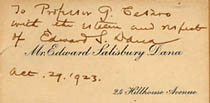 To Professor G. Cesàro
with the esteem and respect
of Edward S. Dana
Mr. Edward Salisbury Dana
Oct. 29, 1923.
24 Hillhouse Avenue